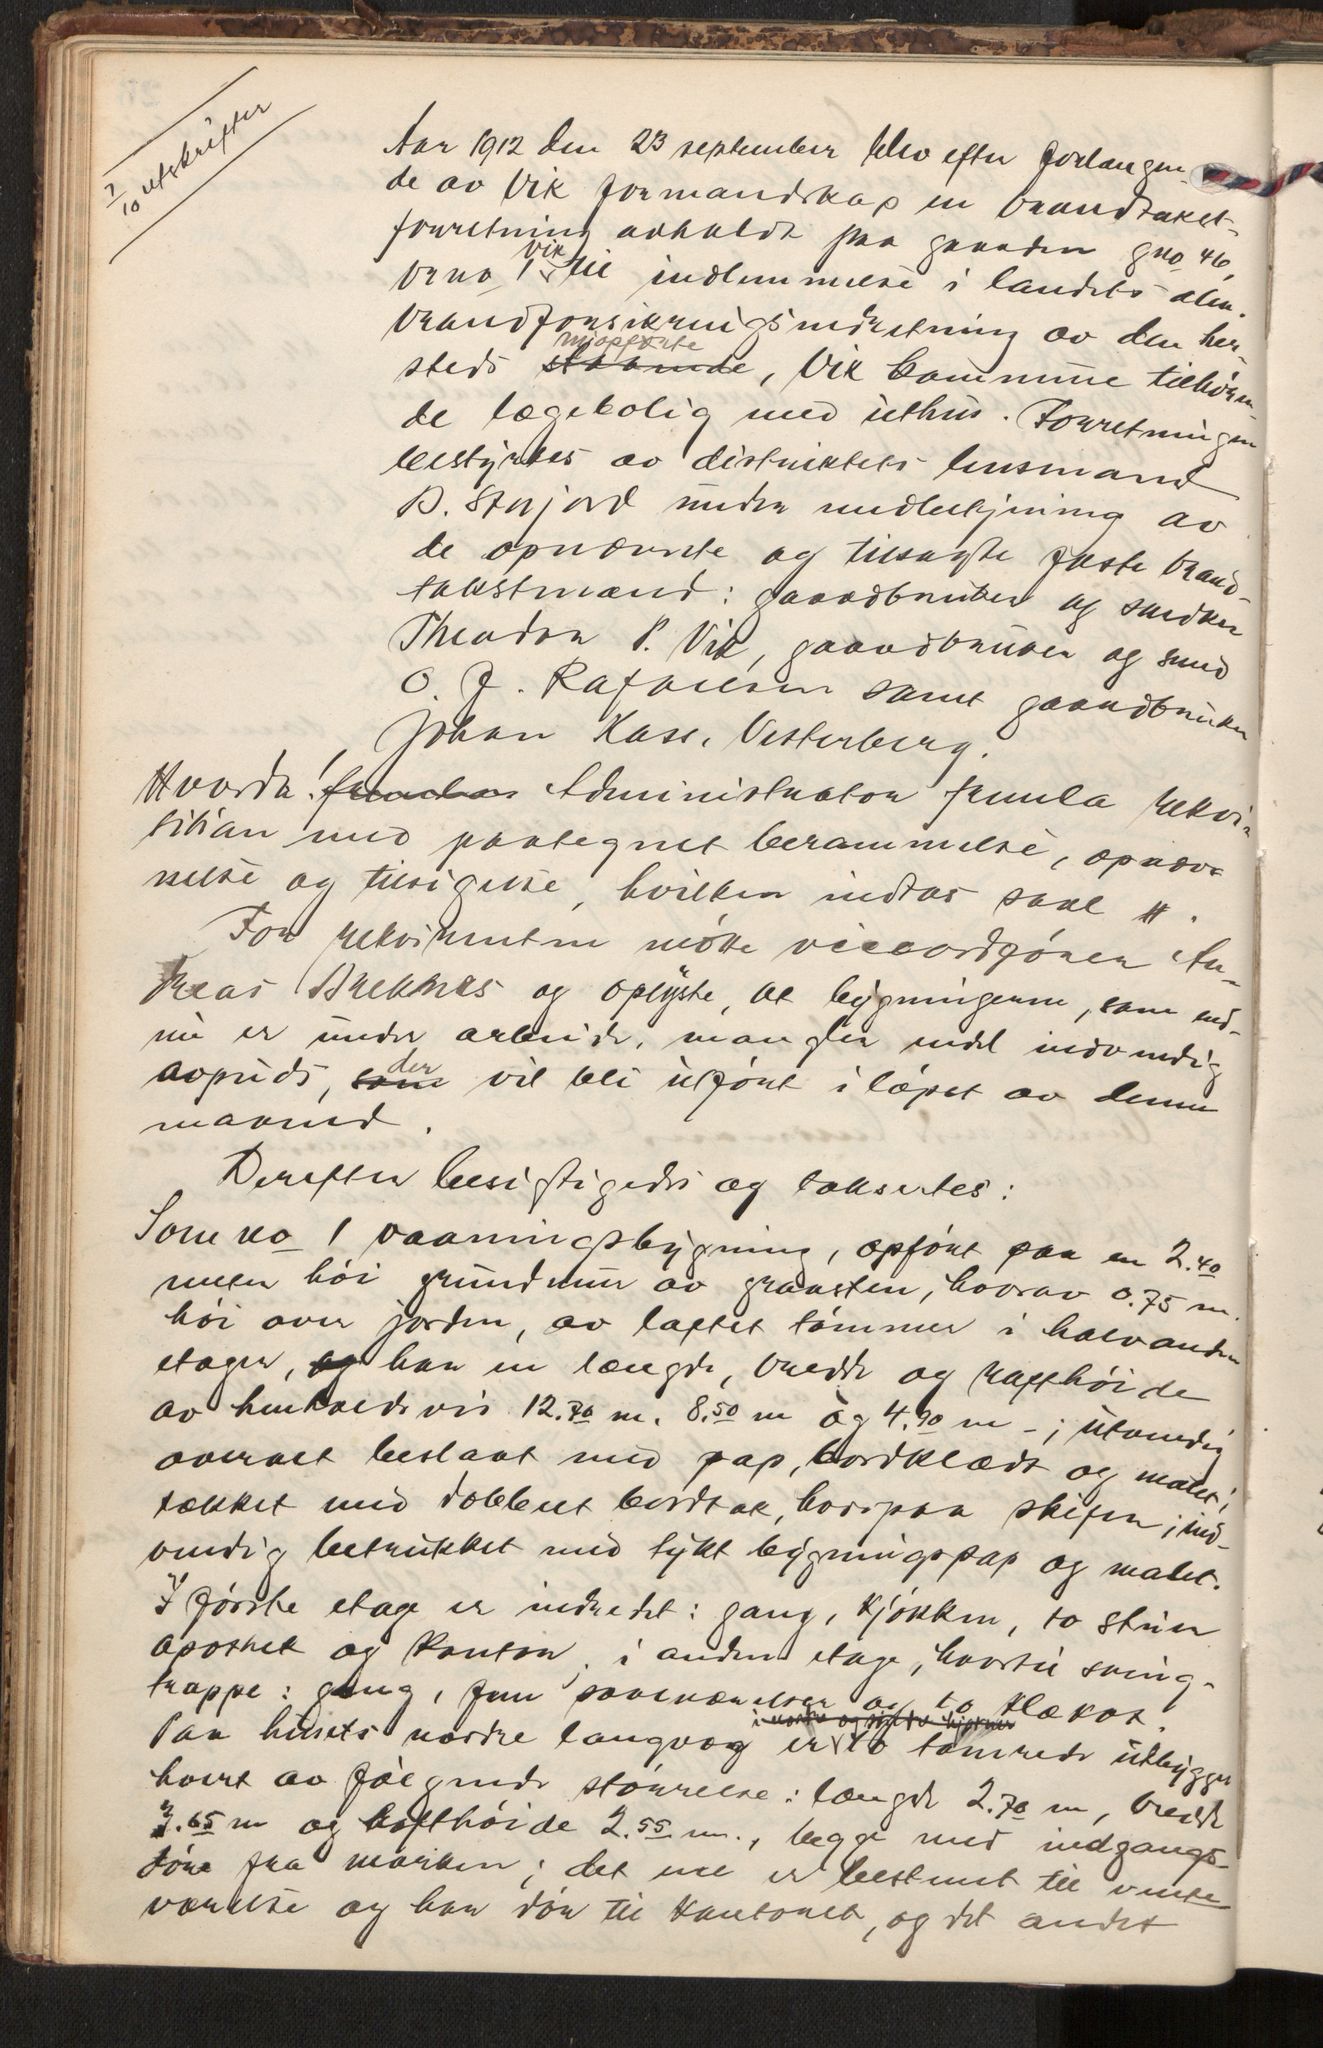 7/10 utskrifter
Aar 1912 den 23 september blev efter forlangen-
de av Vik formandskap en brandtakst-
forretning avholdt paa gaarden gno 46,
brno 1 Vik til indlemmelse i landets alm.
brandforsikringsindretning av den her-
steds ~~staaende~~ nyopførte, Vik kommune tilhøren-
de lægebolig med uthus. Forretningen
bestyrtes av distriktets lensmand
B. Storfjord under medbetjening av
de opnævnte og tilsagte faste brand-
takstmænd: gaardbruker og snedker
Theodor P. Vik, gaardbruker og smed
O. J. Rafaelsen samt gaardbruker
Johan Kass. Vesterberg.
Hvorda! ~~fremlas~~ Administrator fremla rekvi-
sition med paategnet berammelse, opnæv-
nelse og tilsigelse, hvilken indtas saal #.
For rekvirenten møtte viceordfører An-
dreas Brekkes og oplyste, at bygningerne, som end-
nu er under arbeide, mangler endel indvendig
avpuds, ~~som~~ der vil bli utført i løpet av denne
maaned.
Derefter besigtigedes og taksertes:
Som no 1 vaaningsbygning, opført paa en 2.40
meter høi grundmur av graasten, hvorav 0.75 m.
høi over jorden, av laftet tømmer i halvanden
etage, ~~og~~ har en længde, bredde og rafthøide
av henholdsvis 12.70 m. 8.50 m og 4.90 m -; utvendig
overalt beslaat med pap, bordklædt og malet;
tækket med dobbelt bordtak, hvorpaa skifer; ind-
vendig betrukket med tykt bygningspap og malet.
I første etage er indredet: gang, kjøkken, to stuer
apothek og kontor, i anden etage, hvortil sving-
trappe: gang, fem soveværelser og to klækot.
Paa husets nordre langvæg er ~~i nordre og søndre hjørner~~ to tømrede utbygg
hvert av følgende størrelse: længde 2.70 m, bredde
3.65 m og rafthøide 2.55 m., begge med indgangs-
dør fra marken; det ene er bestemt til vente-
værelse og har dør til kontoret, og det andet